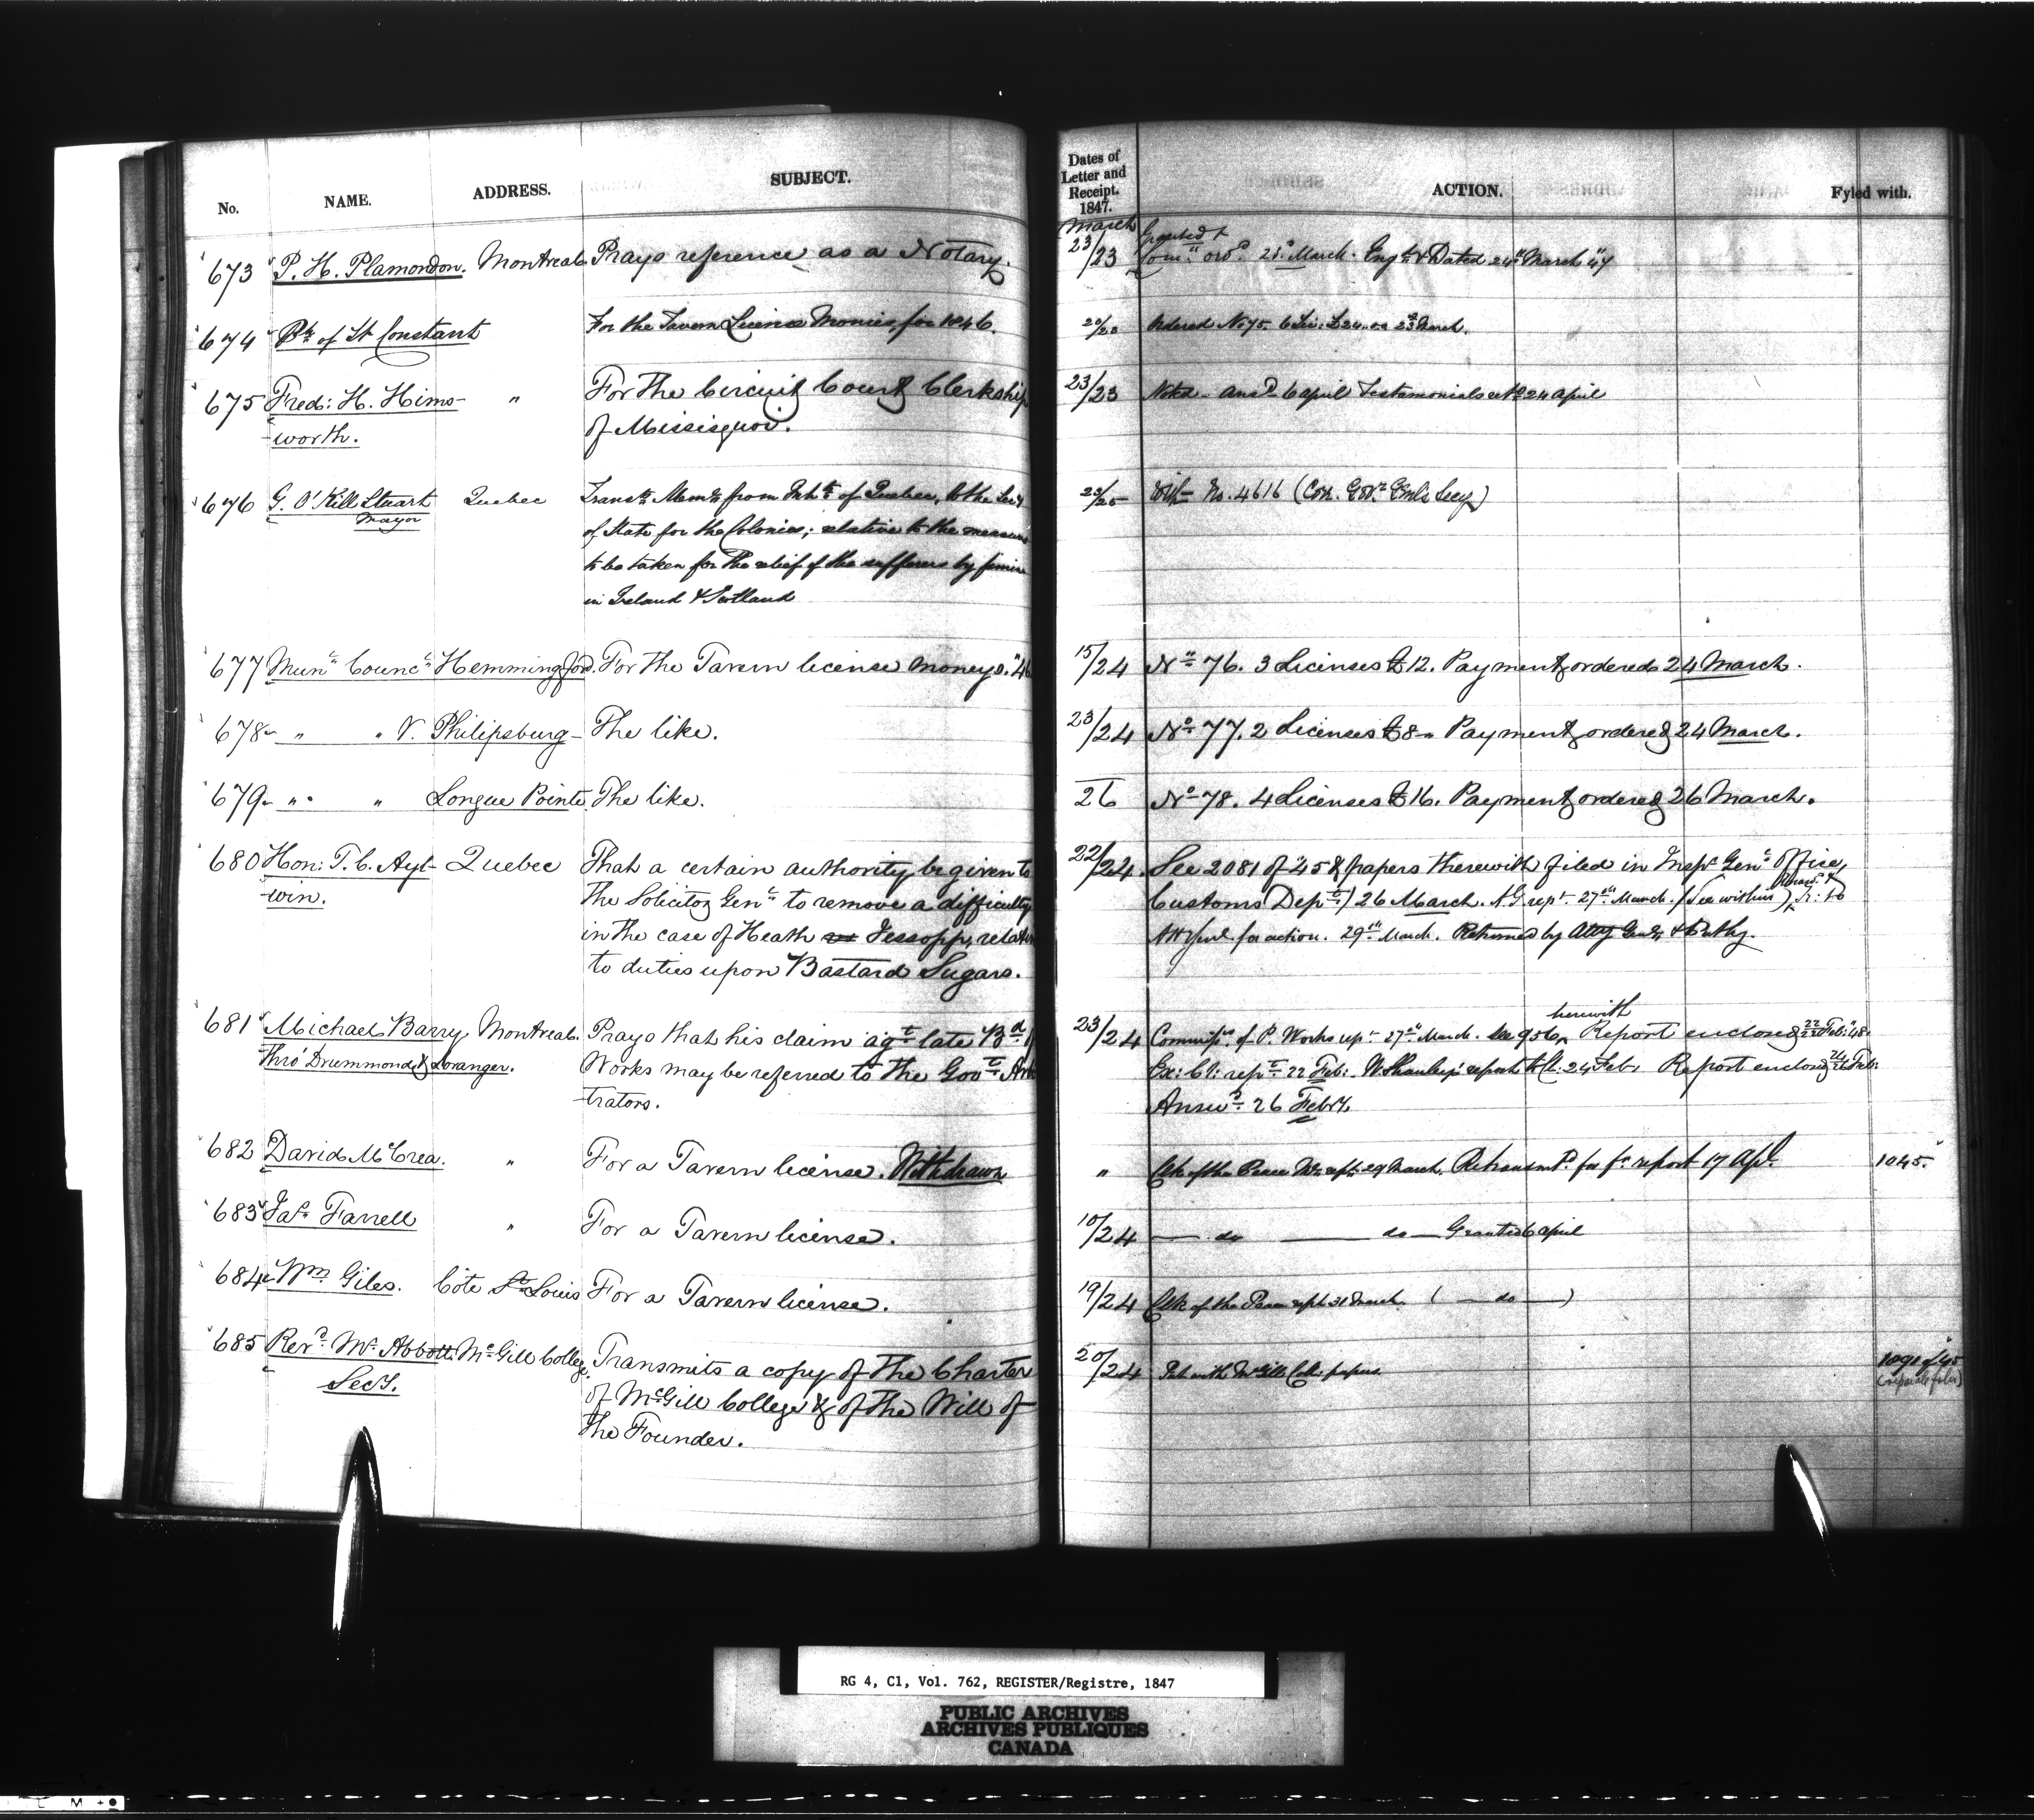 No. NAME. ADDRESS. SUBJECT.
Dates of Letter and Receipt. 1847. ACTION. Fyled with.
March
673 P. H. Plamondon. Montreal. Prays reference as a Notary. 23/23 Granted &
Com:n ord:d 23d March. Eng:d & Dated 24th March "47
674 Ph of St Constant For the Tavern License Monies for 1846. Ordered No 75. 6 Lic: £24. on 23d March.
675 Fred: H. Hims- " For the Circuit Court Clerkship 23/23 Noted - Ansd 6 April Testamonials retd 24 April
-worth. of Missisquoi.
676 G. O'Kill Stuart Quebec Transts Meml from Inhts of Quebec, to the Secy With No. 4616 (Cor. Govr Genls Secy)
Mayor of State for the Colonies; relative to the measures
to be taken for the relief of the sufferers by famine
in Ireland & Scotland
677 Munl Councl Hemmingford. For the Tavern license moneys. "46 15/24 No 76. 3 Licenses £12. Payment ordered 24 March.
678 " " V. Philipsburg - The like. 23/24 No 77. 2 Licenses £8 - Payment ordered 24 March.
679 " " Longue Pointe. The like. 26 No 78. 4 Licenses £16. Payment ordered 26 March.
680 Hon: T. C. Ayl- Quebec That a certain authority be given to 22/24 See 2081 of "45 & papers therewith filed in Inspr Genl Office,
win. the Solicitor Genl to remove a difficulty Customs Dept) 26 March. A G rept 27th March. (See within)
in the case of Heath Jessopp, relative for action. 29th March. Returned by Atty Genl
to duties upon Bastard Sugars.
681 Michael Barry Montreal. Prays that his claim agt late Bd of 23/24 Commissrs of P. Works rept 27th March. See 956, herewith Report enclosed 22 Feb: "48.
Thro' Drummond & Loranger. Works may be referred to the Govt Arbi Ex: Cl: rept 22 Feb: W. Shanly's report 24 Feb: Report enclosed Feb:
-trators. Answd 26 Feby.
682 David McCrea. " For a Tavern license. Withdrawn " Clk of the Peace rept 29 March. Retransmd for fr report 17 Apl. 1045.
683 Jas Farrell " For a Tavern license. 10/24 — do — do — Granted 6 April
684 Wm Giles. Côte St Louis For a Tavern license. 19/24 Clk of the Peace rept 31 March. ( — do — )
685 Revd Mr Abbott. McGill College. Transmits a copy of the Charter 20/24 Put with McGill Coll: papers. 1091 of 45
Secy. of McGill College & of the Will of (separate folio)
the Founder.
RG 4, C1, Vol. 762, REGISTER/Registre, 1847
PUBLIC ARCHIVES
ARCHIVES PUBLIQUES
CANADA